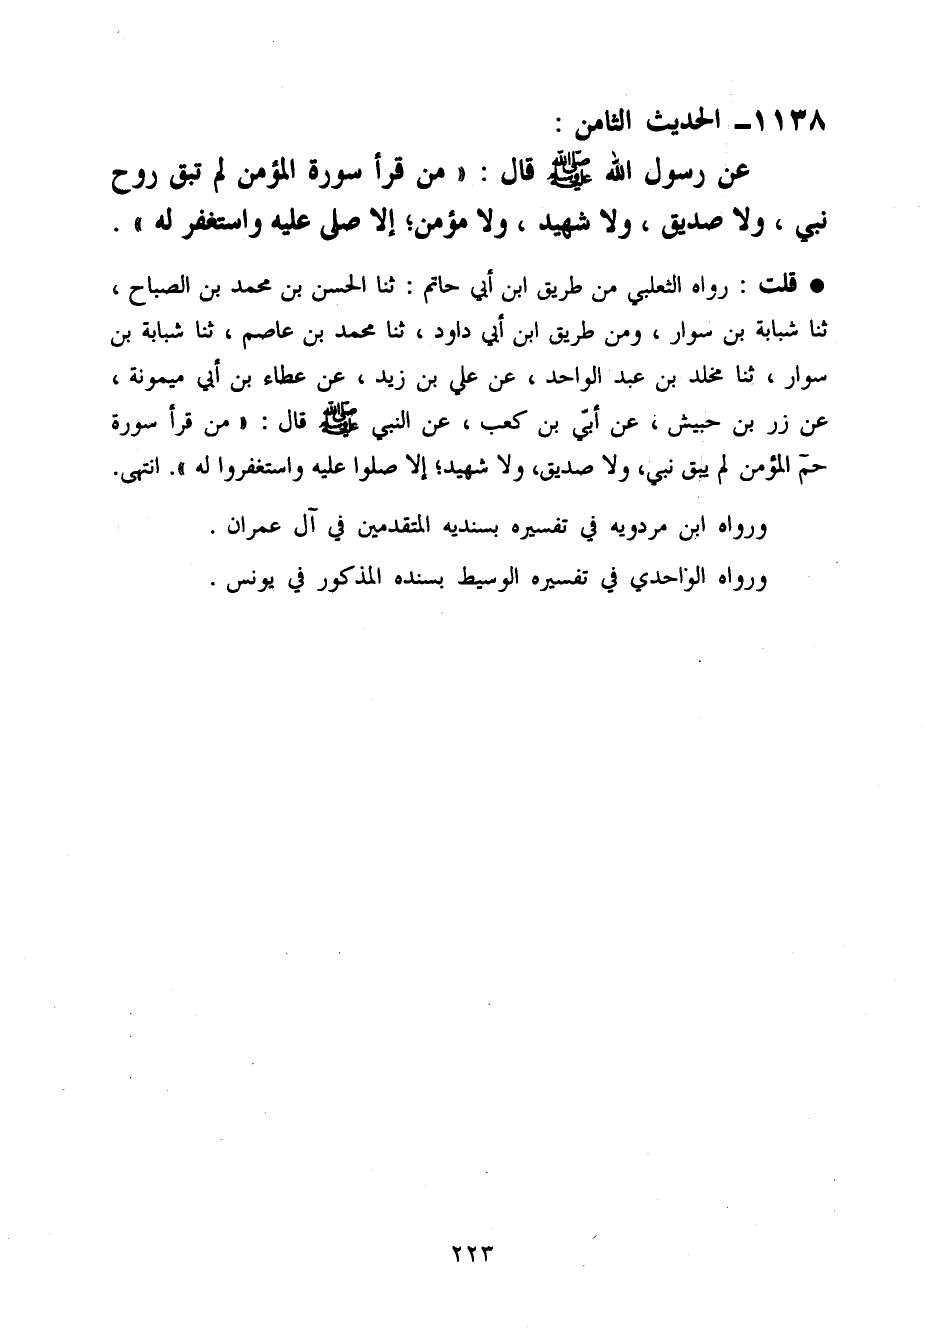 ١١٣٨ـ الحديث الثامن :
عن رسول الله ﷺ قال : « من قرأ سورة المؤمن لم تبق روح
نبي ، ولا صديق ، ولا شهيد ، ولا مؤمن؛ إلا صلى عليه واستغفر له » .
● قلت : رواه الثعلبي من طريق ابن أبي حاتم : ثنا الحسن بن محمد بن الصباح ،
ثنا شبابة بن سوار ، ومن طريق ابن أبي داود ، ثنا محمد بن عاصم ، ثنا شبابة بن
سوار ، ثنا مخلد بن عبد الواحد ، عن علي بن زيد ، عن عطاء بن أبي ميمونة ،
عن زر بن حبيش ، عن أبيّ بن كعب ، عن النبي ﷺ قال : « من قرأ سورة
حمّ المؤمن لم يبق نبي، ولا صديق، ولا شهيد؛ إلا صلوا عليه واستغفروا له ». انتهى.
ورواه ابن مردويه في تفسيره بسنديه المتقدمين في آل عمران .
ورواه الواحدي في تفسيره الوسيط بسنده المذكور في يونس .
٢٢٣